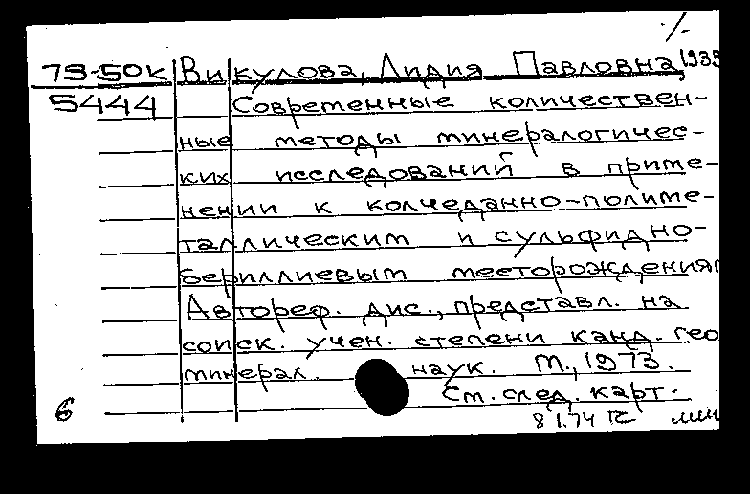 73-50к Викулова, Лидия Павловна, 193
5444 Современные количествен-
ные методы минералогичес-
ких исследований в приме-
нении к колчеданно-полиме-
таллическим и сульфидно-
бериллиевым месторождениям
Автореф. дис., представл. на
соиск. учен. степени канд. гео
минерал. наук. М., 1973.
См. след. карт.
6
8 I.74